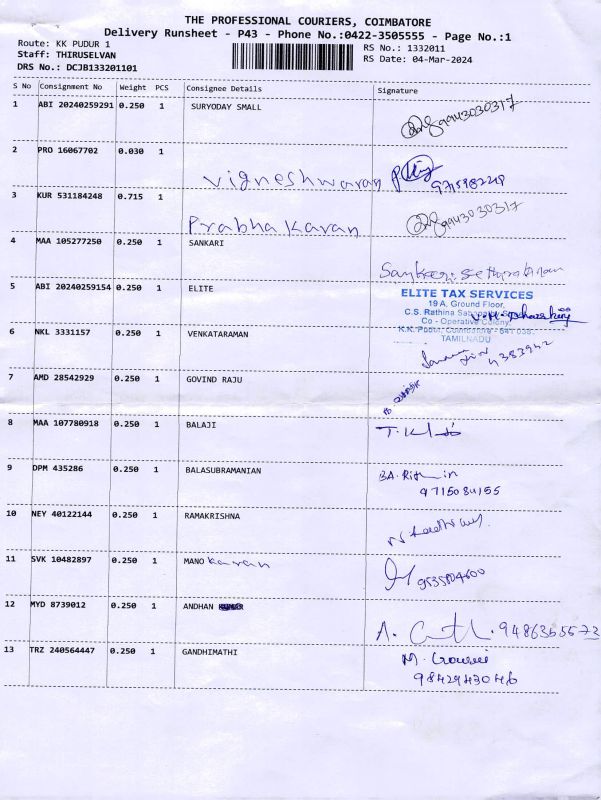 THE PROFESSIONAL COURIERS, COIMBATORE
Delivery Runsheet - P43 - Phone No.:0422-3505555 - Page No.:1
Route: KK PUDUR 1
RS No.: 1332011
Staff: THIRUSELVAN
RS Date: 04-Mar-2024
DRS No.: DCJB133201101
S No Consignment No Weight PCS Consignee Details Signature
1 ABI 20240259291 0.250 1 SURYODAY SMALL 9943030317
2 PRO 16067702 0.030 1
vigneshwaran
3 KUR 531184248 0.715 1
Prabhakaran 9943030317
4 MAA 105277250 0.250 1 SANKARI
5 ABI 20240259154 0.250 1 ELITE
ELITE TAX SERVICES
19 A, Ground Floor,
C.S. Rathina
Co - Operative Colony,
K.K. Pudur, Coimbatore - 641 038,
TAMILNADU
6 NKL 3331157 0.250 1 VENKATARAMAN
7 AMD 28542929 0.250 1 GOVIND RAJU
8 MAA 107780918 0.250 1 BALAJI
9 DPM 435286 0.250 1 BALASUBRAMANIAN
9715084155
10 NEY 40122144 0.250 1 RAMAKRISHNA
11 SVK 10482897 0.250 1 MANO karan
12 MYD 8739012 0.250 1 ANDHAN
A.
13 TRZ 240564447 0.250 1 GANDHIMATHI
M.
9842943046